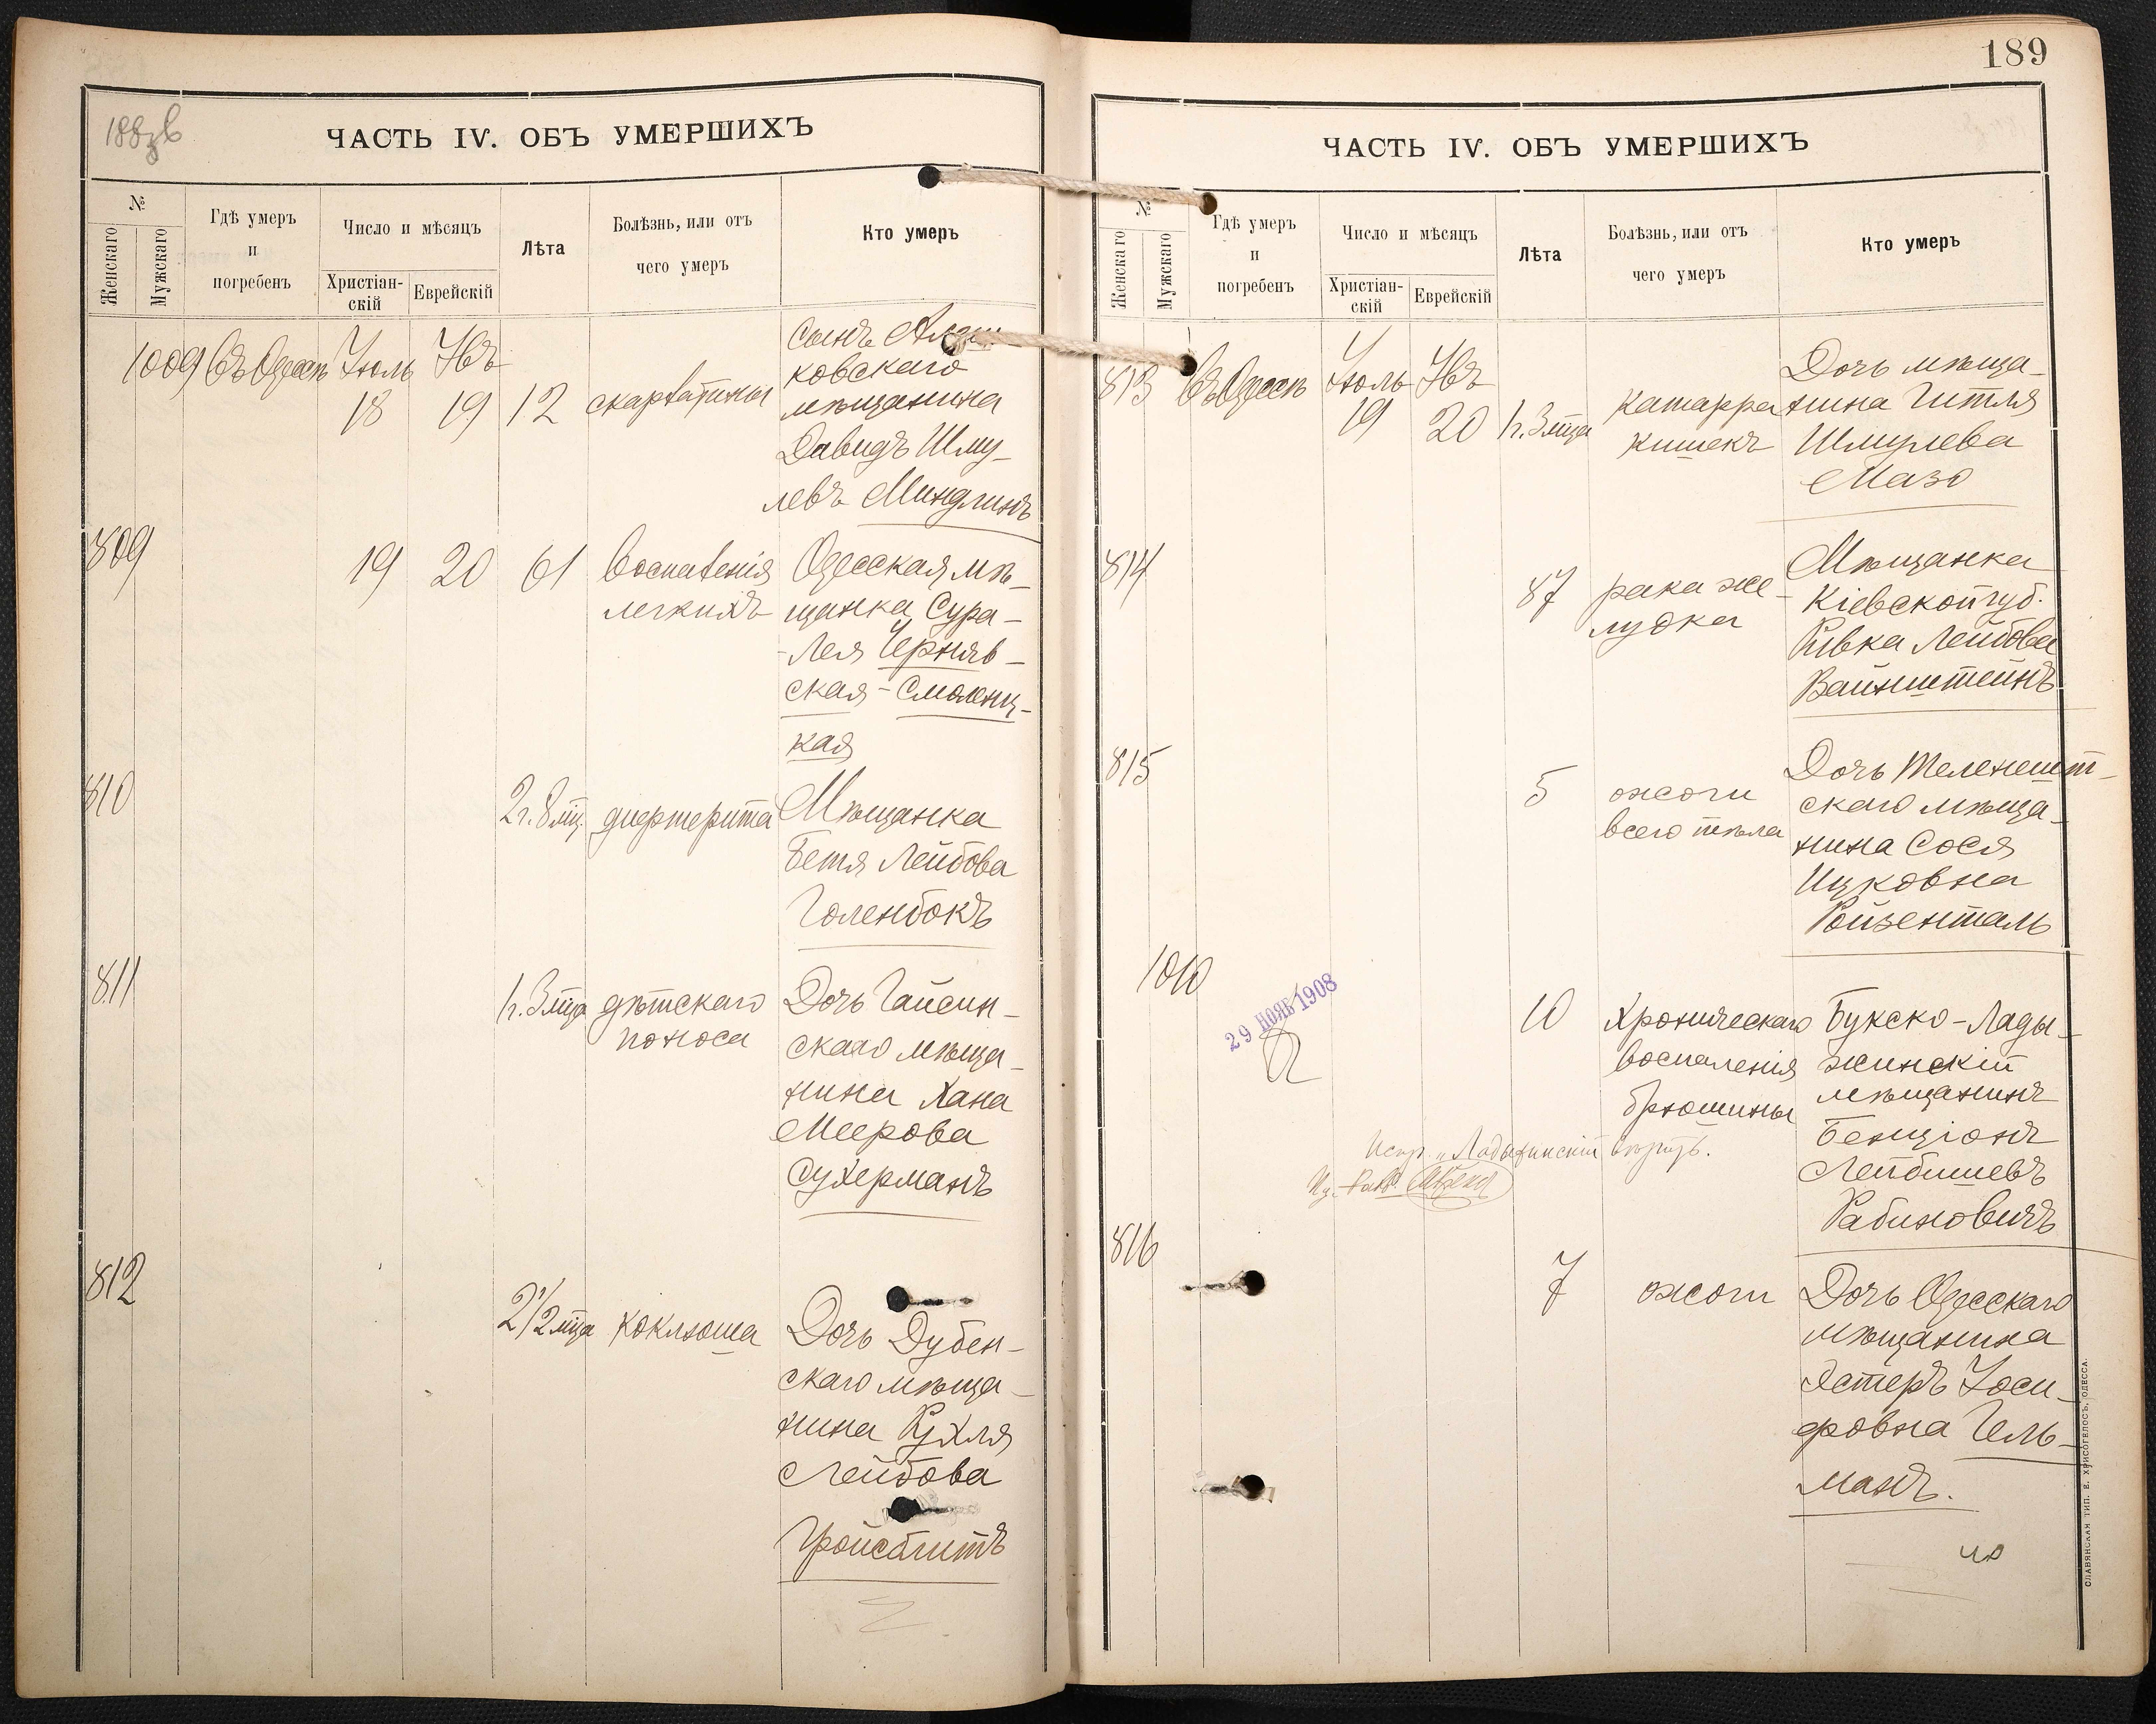 188 зв
ЧАСТЬ IV. ОБЪ УМЕРШИХЪ
№
Женскаго
Мужскаго
Гдѣ умеръ
и
погребенъ
Число и мѣсяцъ
Христіан-
скій
Еврейскій
Лѣта
Болѣзнь, или отъ
чего умеръ
Кто умеръ
1009 Въ Одессѣ Іюль Абъ
18 19 12 скарлатины
Сынъ
ковскаго
мѣщанина
Давидъ Шму-
левъ Миндлинъ
809 19 20 61 Воспаленія
легкихъ
Одесская мѣ-
щанка Сура-
-Лея Черняв-
ская-Смолянц-
кая
810 2г. 8 мц. дифтерита
Мѣщанка
Бетя Лейбова
Голенбокъ
811 1г. 3 мца дѣтскаго
поноса
Дочь Гайсин-
скаго мѣща-
нина Хана
Меерова
Сухерманъ
812 2 1/2 мца коклюша
Дочь Дубен-
скаго мѣща-
нина Рухля
Лейбова
Гройсблитъ
189
ЧАСТЬ IV. ОБЪ УМЕРШИХЪ
№
Женскаго
Мужскаго
Гдѣ умеръ
и
погребенъ
Число и мѣсяцъ
Христіан-
скій
Еврейскій
Лѣта
Болѣзнь, или отъ
чего умеръ
Кто умеръ
813 Въ Одессѣ Іюль Абъ
19 20 1г. 3 мца
катарра
кишекъ
Дочь мѣща-
нина Гитля
Шмулева
Мазо
814 87 рака же-
лудка
Мѣщанка
Кіевской губ.
Ривка Лейбова
Вайнштейнъ
815 5 ожоги
всего тѣла
Дочь Теленешт-
скаго мѣща-
нина Сося
Ицковна
Ройзенталь
1010 10 Хроническаго
воспаленія
брюшины
Букско-Лады-
жинскій
мѣщанинъ
Бенціонъ
Лейбишевъ
Рабиновичъ
29 НОЯБ 1908
Испр. "Ладыжинскій" вѣрить.
816 7 ожоги
Дочь Одесскаго
мѣщанина
Эстеръ Іоси-
фовна Гель-
манъ.
СЛАВЯНСКАЯ ТИП. Е. ХРИСОГЕЛОСЪ, ОДЕССА.